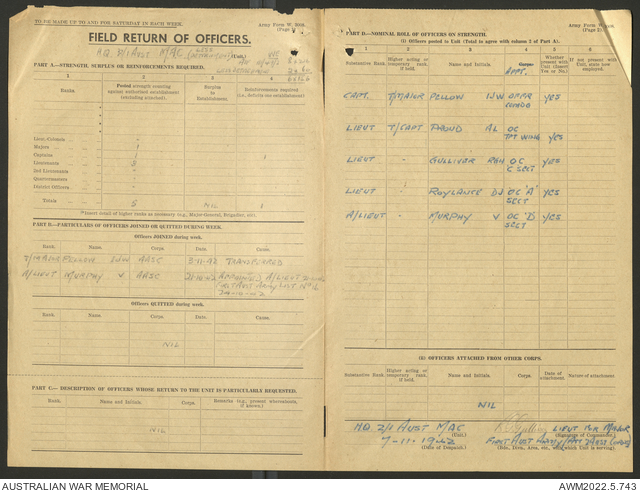 TO BE MADE UP TO AND FOR SATURDAY IN EACH WEEK.
Army Form W. 3008.
(Page 1)
FIELD RETURN OF OFFICERS.
H.Q. 2/1 AUST M/AC
(Unit)
PART A.—STRENGTH, SURPLUS OR REINFORCEMENTS REQUIRED.
1 2 3 4
Ranks
Posted strength counting against authorised establishment (excluding attached).
Surplus to Establishment.
Reinforcements required (i.e., deficits one establishment)
Lieut.-Colonels
Majors 1
Captains 1 1
Lieutenants 3
2nd Lieutenants
Quartermasters
Totals 5 NIL 1
*Insert detail of higher ranks as necessary (e.g., Major-General, Brigadier, etc).
PART B.—PARTICULARS OF OFFICERS JOINED OR QUITTED DURING WEEK.
Officers JOINED during week.
Rank. Name. Corps. Date. Cause.
T/MAJOR PELLOW IJW AASC 3-11-42 TRANSFERRED
A/LIEUT MURPHY V AASC 21-10-42 APPOINTED A/LIEUT
FIRST AUST ARMY LIST No 14
Officers QUITTED during week.
Rank. Name. Corps. Date. Cause.
NIL
PART C.—DESCRIPTION OF OFFICERS WHOSE RETURN TO THE UNIT IS PARTICULARLY REQUESTED.
Rank. Name and Initials. Corps. Remarks (e.g., present whereabouts, if known.)
NIL
Army Form W. 3008.
(Page 2)
PART D.—NOMINAL ROLL OF OFFICERS ON STRENGTH.
(i) Officers posted to Unit (Total to agree with column 2 of Part A).
1 2 3 4 5 6
Substantive Rank. Higher acting or temporary rank, if held. Name and Initials. Corps. APPT. Whether present with Unit (Insert Yes or No.) If not present with Unit, state how employed.
CAPT. T/MAJOR PELLOW IJW OFFR COMDG YES
LIEUT T/CAPT PROUD AL OC TPT WING YES
LIEUT - GULLIVER RGH OC C SECT YES
LIEUT - ROYLANCE DJ OC 'A' SECT YES
A/LIEUT - MURPHY V OC 'D' SECT YES
(ii) OFFICERS ATTACHED FROM OTHER CORPS.
Substantive Rank. Higher acting or temporary rank, if held. Name and Initials. Corps. Date of attachment. Nature of attachment.
NIL
H.Q. 2/1 AUST M/AC
(Unit.)
LIEUT FOR MAJOR
(Signature of Commander.)
7-11-1942
(Date of Despatch.)
FIRST AUST ARMY
(Bde., Divn., Area, etc., with which Unit is serving).
AUSTRALIAN WAR MEMORIAL
AWM2022.5.743